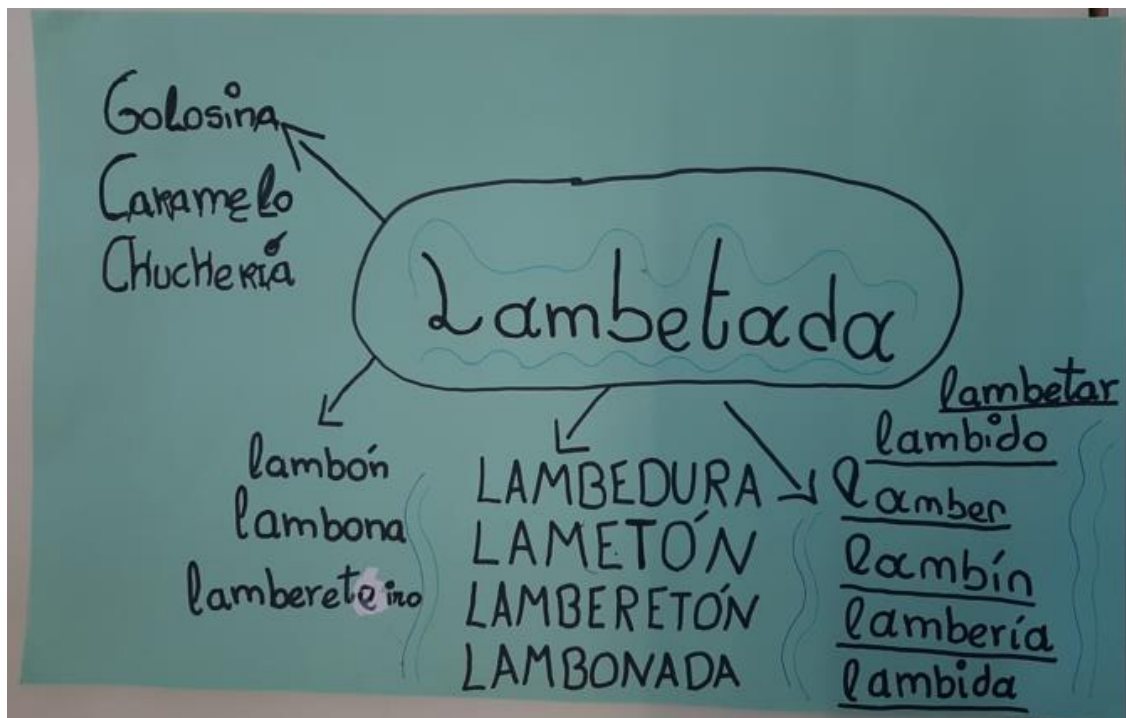 Golosina
Caramelo
Chuchería
Lambetada
lambón
lambona
lambereteiro
LAMBEDURA
LAMETÓN
LAMBERETÓN
LAMBONADA
lambetar
lambido
lamber
lambín
lambería
lambida